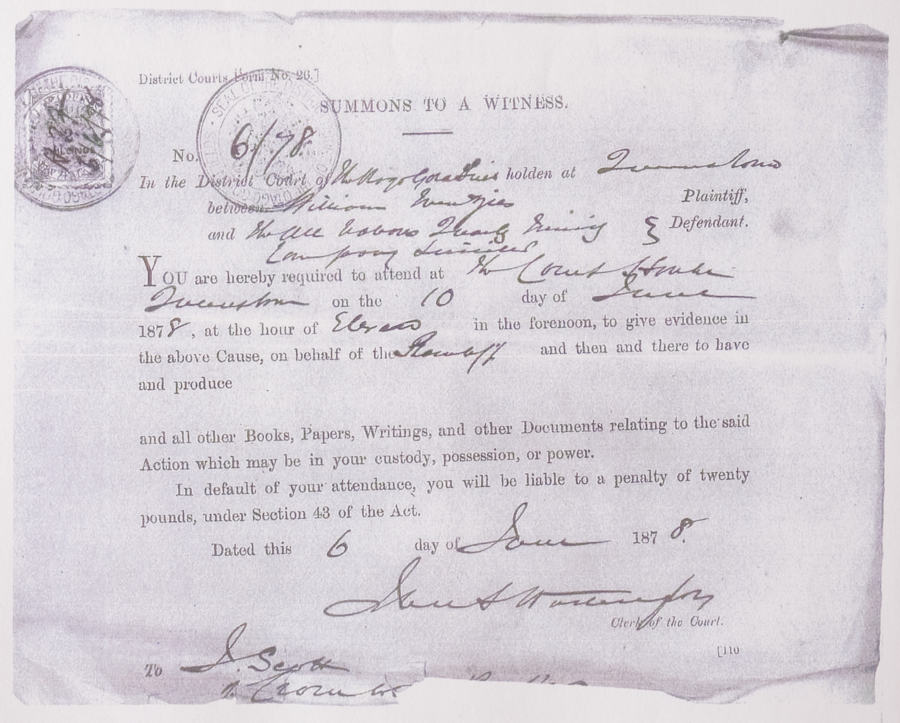 District Courts Form No. 26.]
SUMMONS TO A WITNESS.
No. 6/78.
In the District Court of the Goldfields holden at Queenstown
between William Plaintiff,
and the Quartz Mining Defendant.
Company Limited
YOU are hereby required to attend at the Court House
Queenstown on the 10 day of June
1878, at the hour of Eleven in the forenoon, to give evidence in
the above Cause, on behalf of the Plaintiff and then and there to have
and produce
and all other Books, Papers, Writings, and other Documents relating to the said
Action which may be in your custody, possession, or power.
In default of your attendance, you will be liable to a penalty of twenty
pounds, under Section 43 of the Act.
Dated this 6 day of June 1878.
Clerk of the Court.
[110
To J. Scott